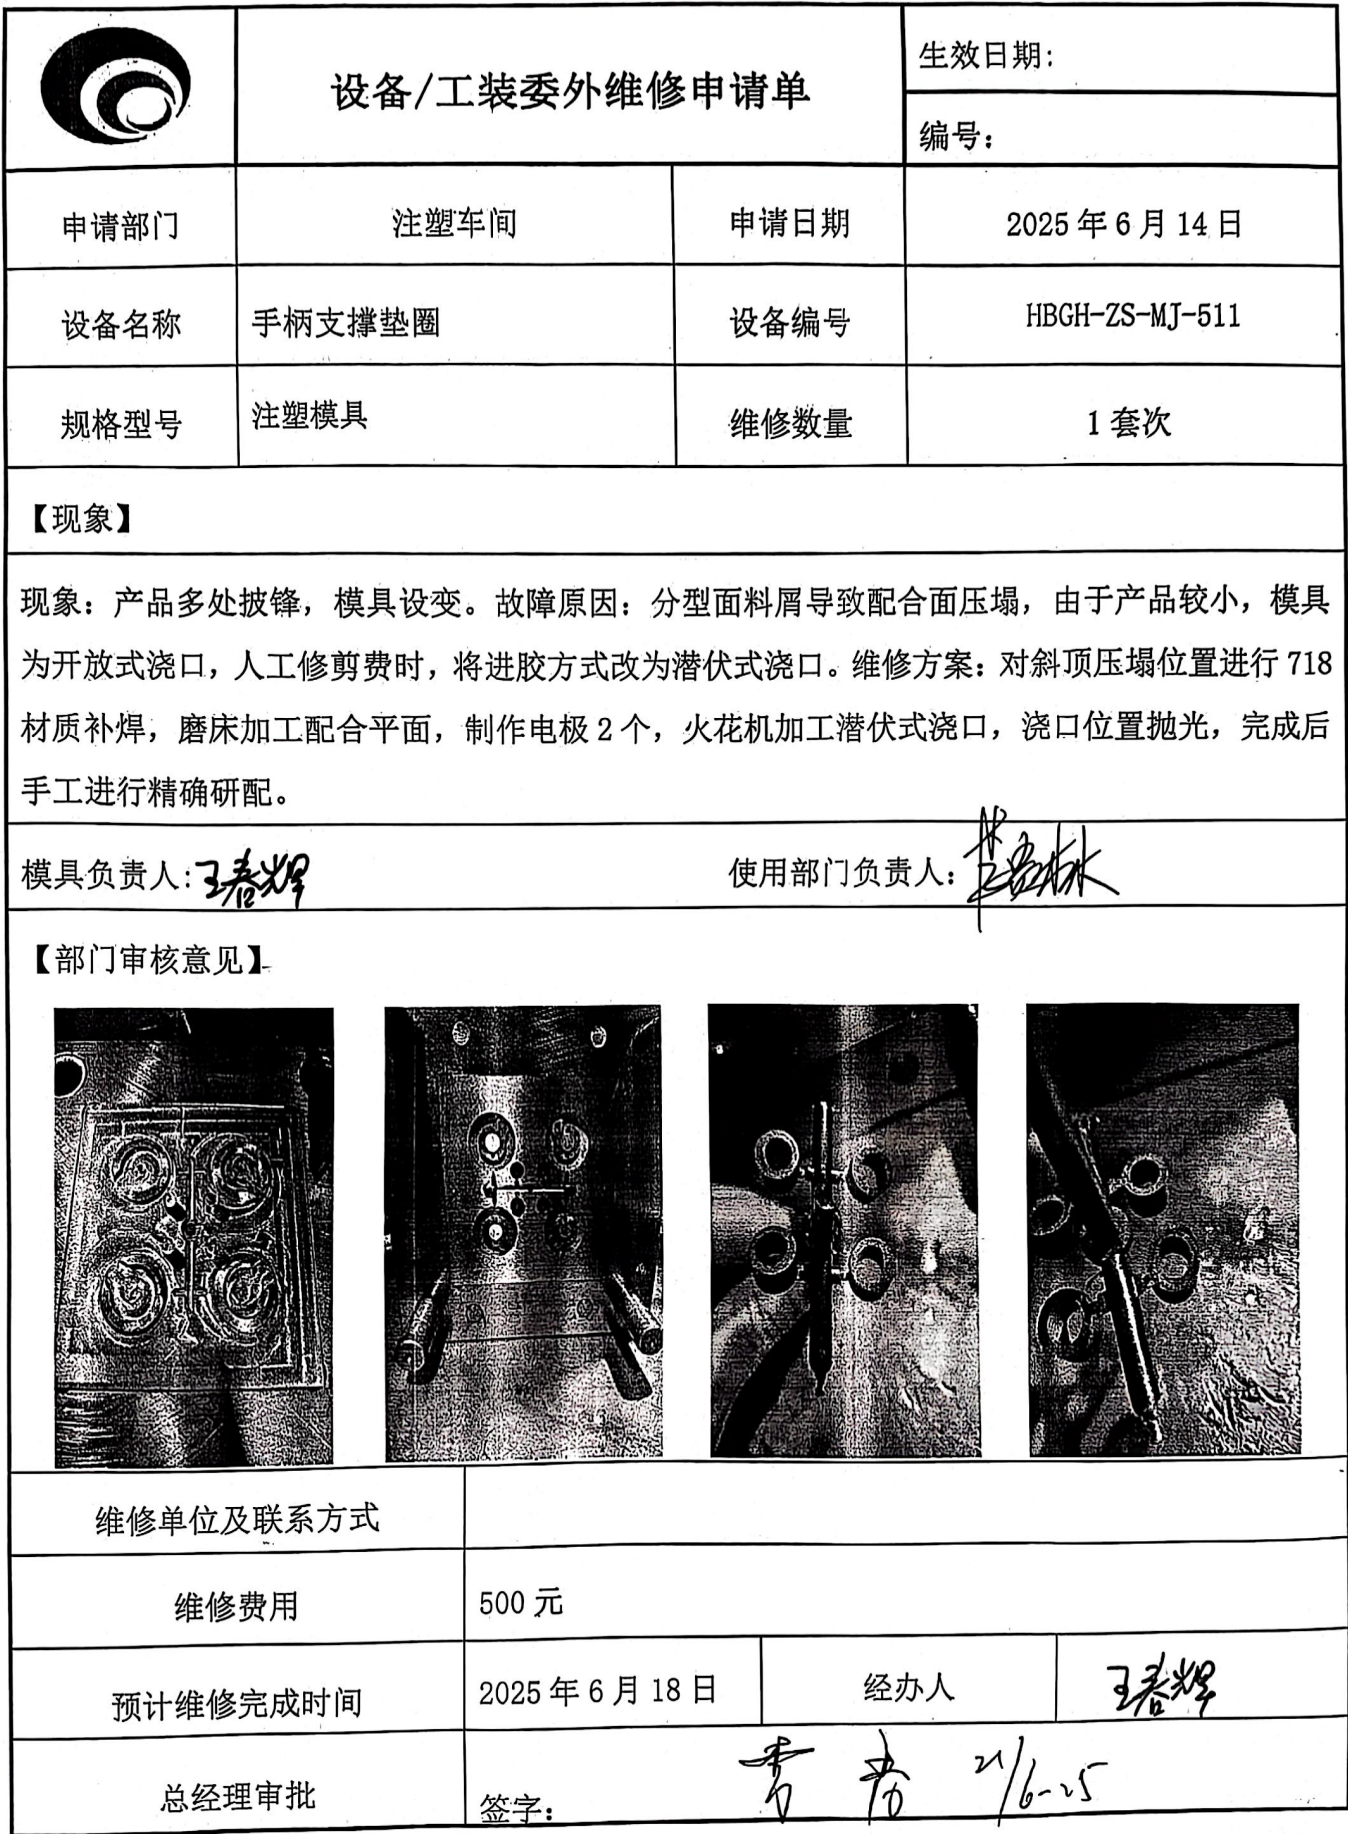 设备/工装委外维修申请单
生效日期:
编号：
申请部门 注塑车间 申请日期 2025年6月14日
设备名称 手柄支撑垫圈 设备编号 HBGH-ZS-MJ-511
规格型号 注塑模具 维修数量 1套次
【现象】
现象：产品多处披锋，模具设变。故障原因：分型面料屑导致配合面压塌，由于产品较小，模具
为开放式浇口，人工修剪费时，将进胶方式改为潜伏式浇口。维修方案：对斜顶压塌位置进行718
材质补焊，磨床加工配合平面，制作电极2个，火花机加工潜伏式浇口，浇口位置抛光，完成后
手工进行精确研配。
模具负责人:王春辉 使用部门负责人：
【部门审核意见】
维修单位及联系方式
维修费用 500元
预计维修完成时间 2025年6月18日 经办人 王春辉
总经理审批 签字： 21/6-25